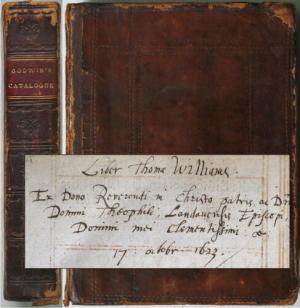 GODWIN'S
CATALOGUE
Liber Thomæ Williams
Ex Dono Reverenti in Christo patris, ac Dni
Domini Theophili, Landavensis Episcopi
Domini mei clementissimi &
17 octobr 1623.